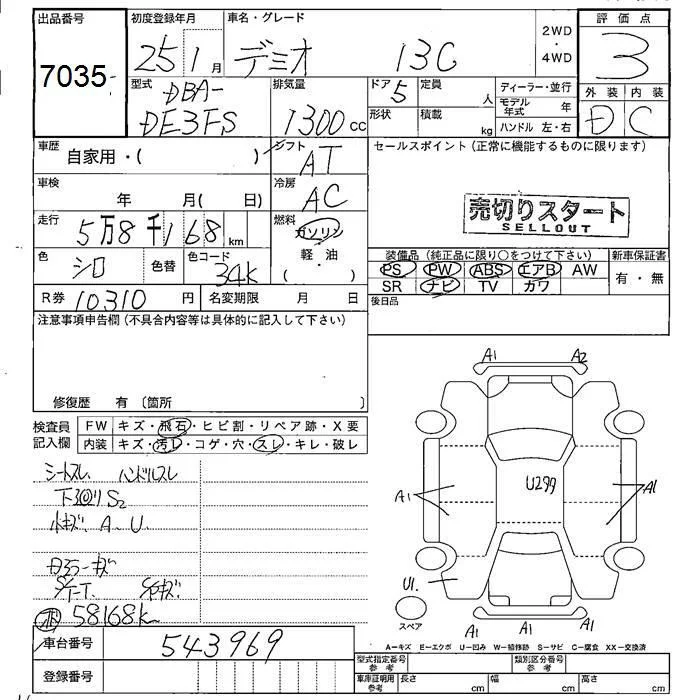 出品番号
7035
初度登録年月
25 1 月
車名・グレード
デミオ 13C
2WD
・
4WD
評価点
3
外装 内装
D C
型式
DBA-
DE3FS
排気量
1300 cc
ドア 5
定員 人
形状
積載 kg
ディーラー・並行
モデル年式 年
ハンドル 左・右
車歴
自家用・( )
シフト
AT
車検
年 月( 日)
冷房
AC
走行
5万8千168 km
燃料
ガソリン
軽・油
( ・ )
色
シロ
色替
色コード
34K
R券 10310 円
名変期限 月 日
セールスポイント(正常に機能するものに限ります)
売切りスタート
SELLOUT
装備品(純正品に限り○をつけて下さい)
PS PW ABS エアB AW
SR ナビ TV カワ
新車保証書
有・無
後日品
注意事項申告欄(不具合内容等は具体的に記入して下さい)
修復歴 有 〔箇所 〕
検査員
記入欄
FW キズ・飛石・ヒビ割・リペア跡・X要
内装 キズ・汚レ・コゲ・穴・スレ・キレ・破レ
シートスレ ハンドルスレ
下回リS2
小キズ、A、U、
58168k
A1 A2
U299
A1 A1
U1.
A1 A1 A1
スペア
A−キズ E−エクボ U−凹み W−補修跡 S−サビ C−腐食 XX−交換済
車台番号
543969
登録番号
型式指定番号
参考
類別区分番号
参考
車庫証明用
参考
長さ cm
幅 cm
高さ cm